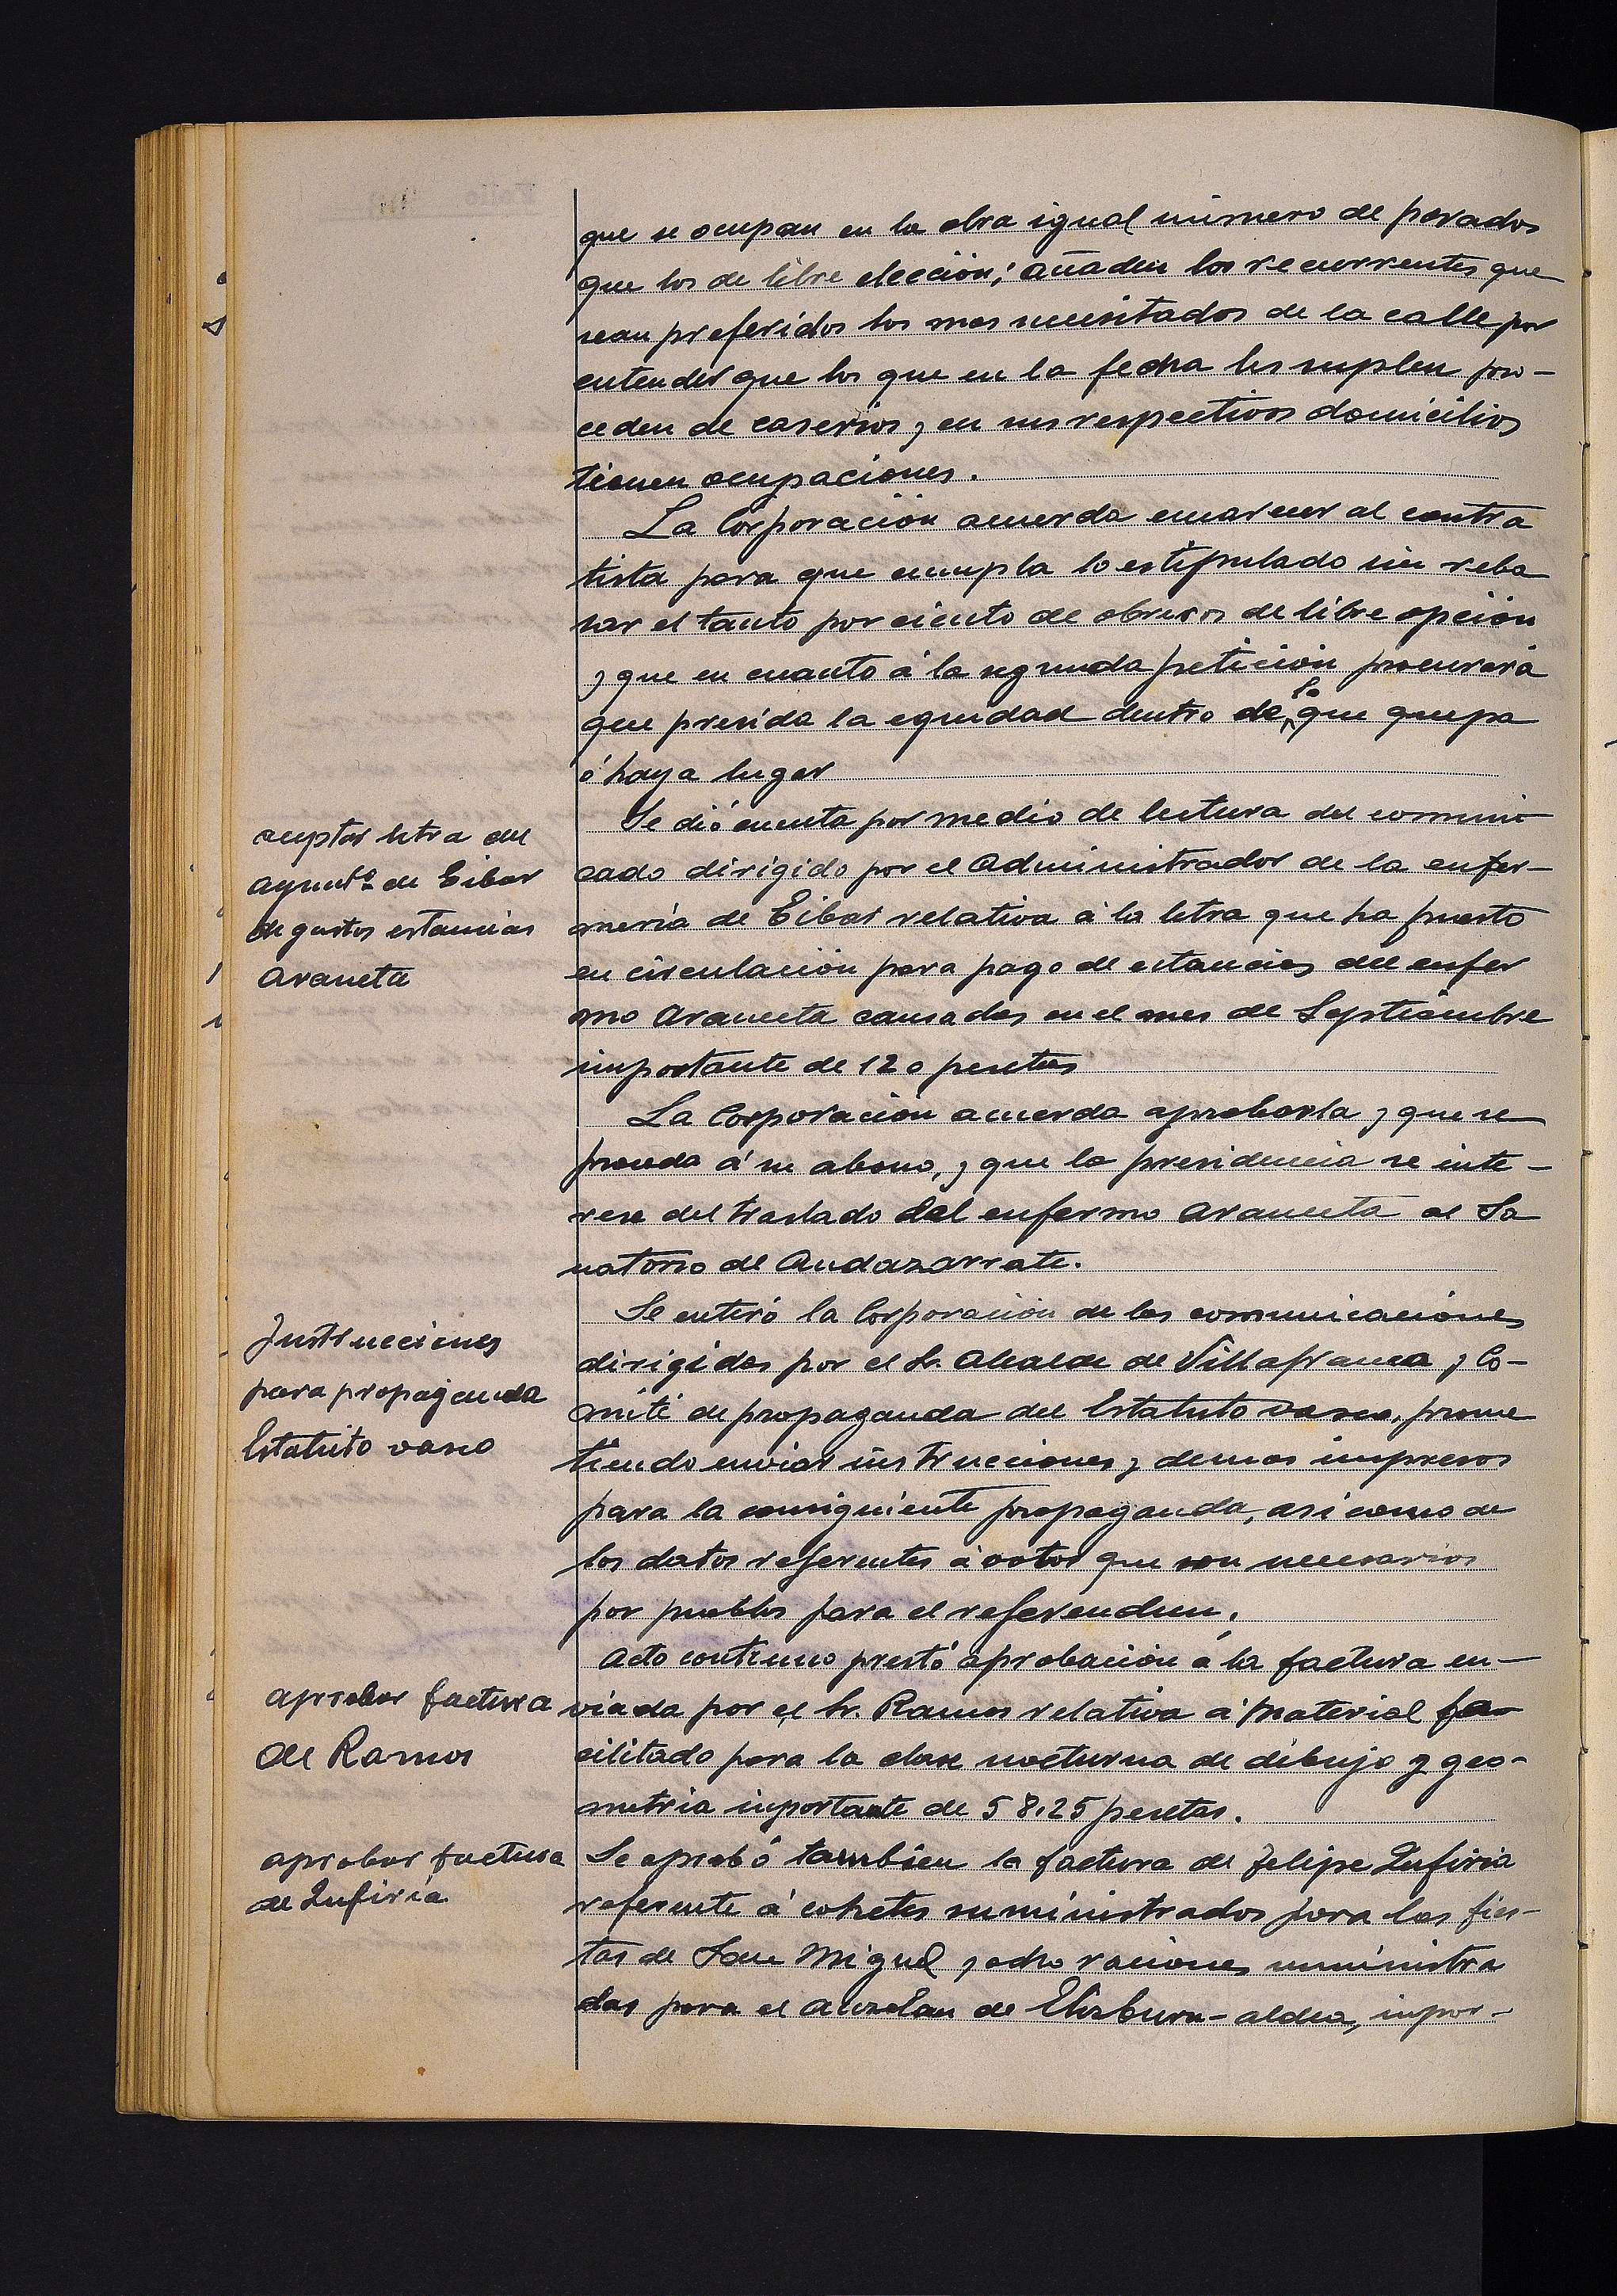 que se ocupan en la obra igual número de parados
que los de libre elección; añaden los recurrentes que
sean preferidos los mas necesitados de la calle por
entender que los que en la fecha les suplen pro-
ceden de caserios y en sus respectivos domicilios
tienen ocupaciones.
La Corporación acuerda encarecer al contra
tista para que cumpla lo estipulado sin reba
sar el tanto por ciento de obreros de libre opción
y que en cuanto á la segunda petición procurará
que presida la equidad dentro de lo que quepa
ó haya lugar
aceptar letra del
ayuntº de Eibar
de gastos estancias
Araneta
Se dió cuenta por medio de lectura del comuni
cado dirigido por el Administrador de la enfer-
meria de Eibar relativa á la letra que ha puesto
en circulación para pago de estancias del enfer
mo Araneta causadas en el mes de Septiembre
importante de 120 pesetas
La Corporación acuerda aprobarla y que se
proceda á su abono, y que la presidencia se inte-
rese del traslado del enfermo Araneta al Sa
natorio de Andazarrate.
Instrucciones
para propaganda
Estatuto vasco
Se enteró la Corporación de las comunicaciones
dirigidas por el Sr. Alcalde de Villafranca y Co-
mité de propaganda del Estatuto vasco, prome
tiendo enviar instrucciones y demas impresos
para la consiguiente propaganda, asi como de
los datos referentes á votos que son necesarios
por pueblos para el referendum.
aprobar factura
de Ramos
Acto continuo prestó aprobación á la factura en-
viada por el Sr. Ramos relativa á material fa-
cilitado para la clase nocturna de dibujo y geo-
metria importante de 58,25 pesetas.
aprobar factura
de Zufiria
Se aprobó tambien la factura de Felipe Zufiria
referente á cohetes suministrados para las fies-
tas de San Miguel y ocho raciones suministra
das para el auzolan de Elizburu-aldea, impor-